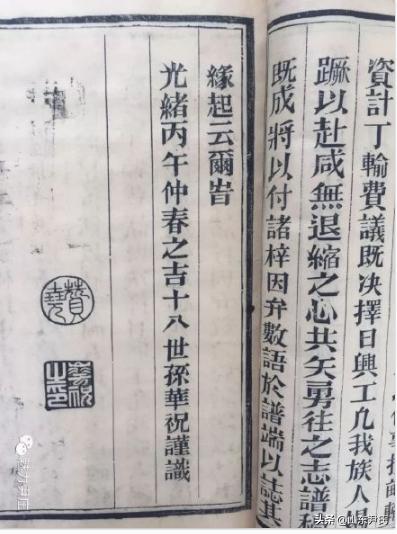 資計丁輸費議既决擇日興工凡我族人竭
蹶以赴咸無退縮之心共矢勇往之志譜稿
既成將以付諸梓因弁數語於譜端以誌其
緣起云爾旹
光緒丙午仲春之吉十八世孫華祝謹識
華祝之印
头条 @山东尹琦